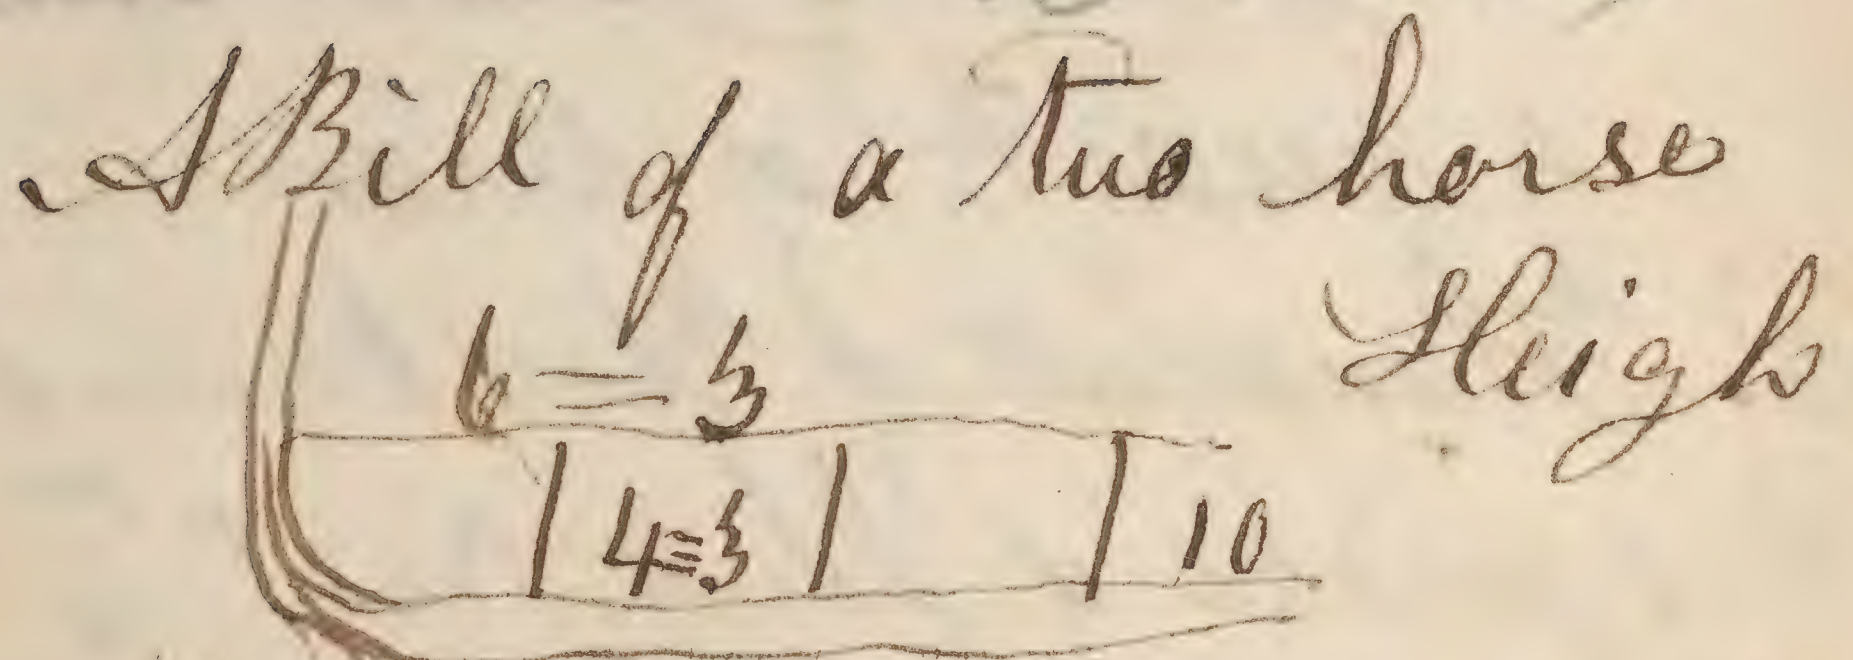 A Bill of a two horse
Sleigh
6 = 3
4 ≡ 3
10